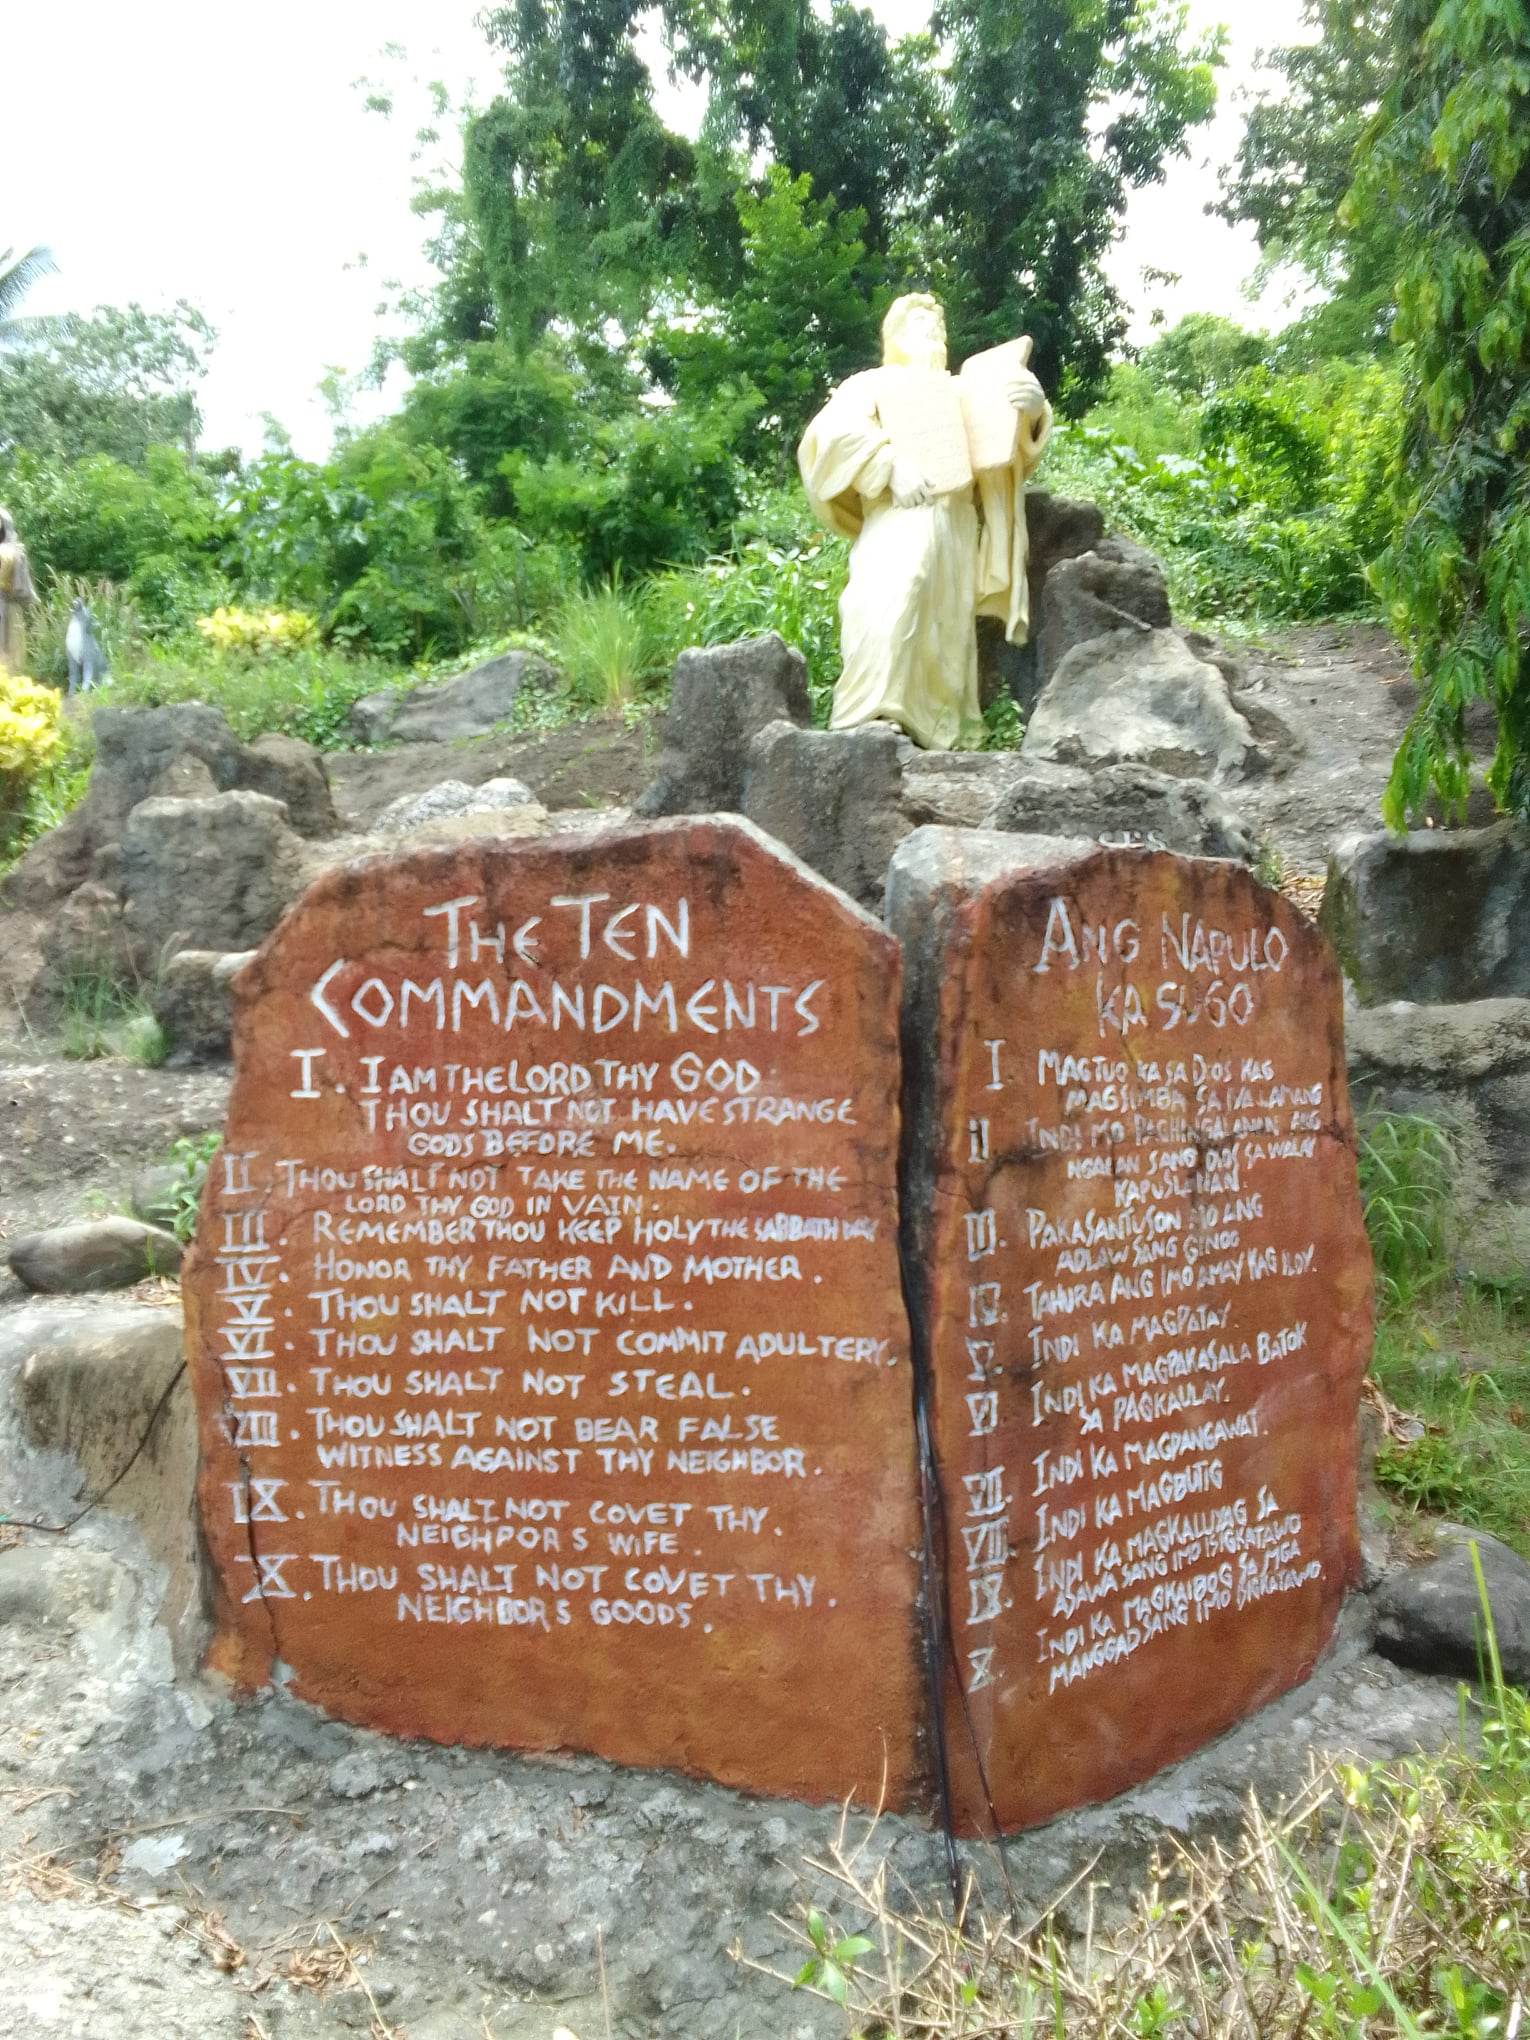 THE TEN
COMMANDMENTS
I. I AM THE LORD THY GOD.
THOU SHALT NOT HAVE STRANGE
GODS BEFORE ME.
II. THOU SHALT NOT TAKE THE NAME OF THE
LORD THY GOD IN VAIN.
III. REMEMBER THOU KEEP HOLY THE SABBATH DAY
IV. HONOR THY FATHER AND MOTHER.
V. THOU SHALT NOT KILL.
VI. THOU SHALT NOT COMMIT ADULTERY.
VII. THOU SHALT NOT STEAL.
VIII. THOU SHALT NOT BEAR FALSE
WITNESS AGAINST THY NEIGHBOR.
IX. THOU SHALT NOT COVET THY.
NEIGHPORS WIFE.
X. THOU SHALT NOT COVET THY.
NEIGHBORS GOODS.
ANG NAPULO
KA SUGO
I. MAGTUO KA SA DIOS KAG
MAGSIMBA SA IYA LAMANG
II INDI MO PAGHINGALANAN ANG
NGALAN SANG DIOS SA WALAY
KAPUSLANAN.
III. PAKASANTUSON MO ANG
ADLAW SANG GINOO
IV. TAHURA ANG IMO AMAY KAG ILOY.
V. INDI KA MAGPATAY.
VI INDI KA MAGPAKASALA BATOK
SA PAGKAULAY.
VII. INDI KA MAGPANGAWAT.
VIII. INDI KA MAGBUTIG
IX. INDI KA MAGKALUYAG SA
ASAWA SANG IMO ISIGKATAWO
X. INDI KA MAGKAIBOG SA MGA
MANGGAD SANG IMO ISIGKATAWO.